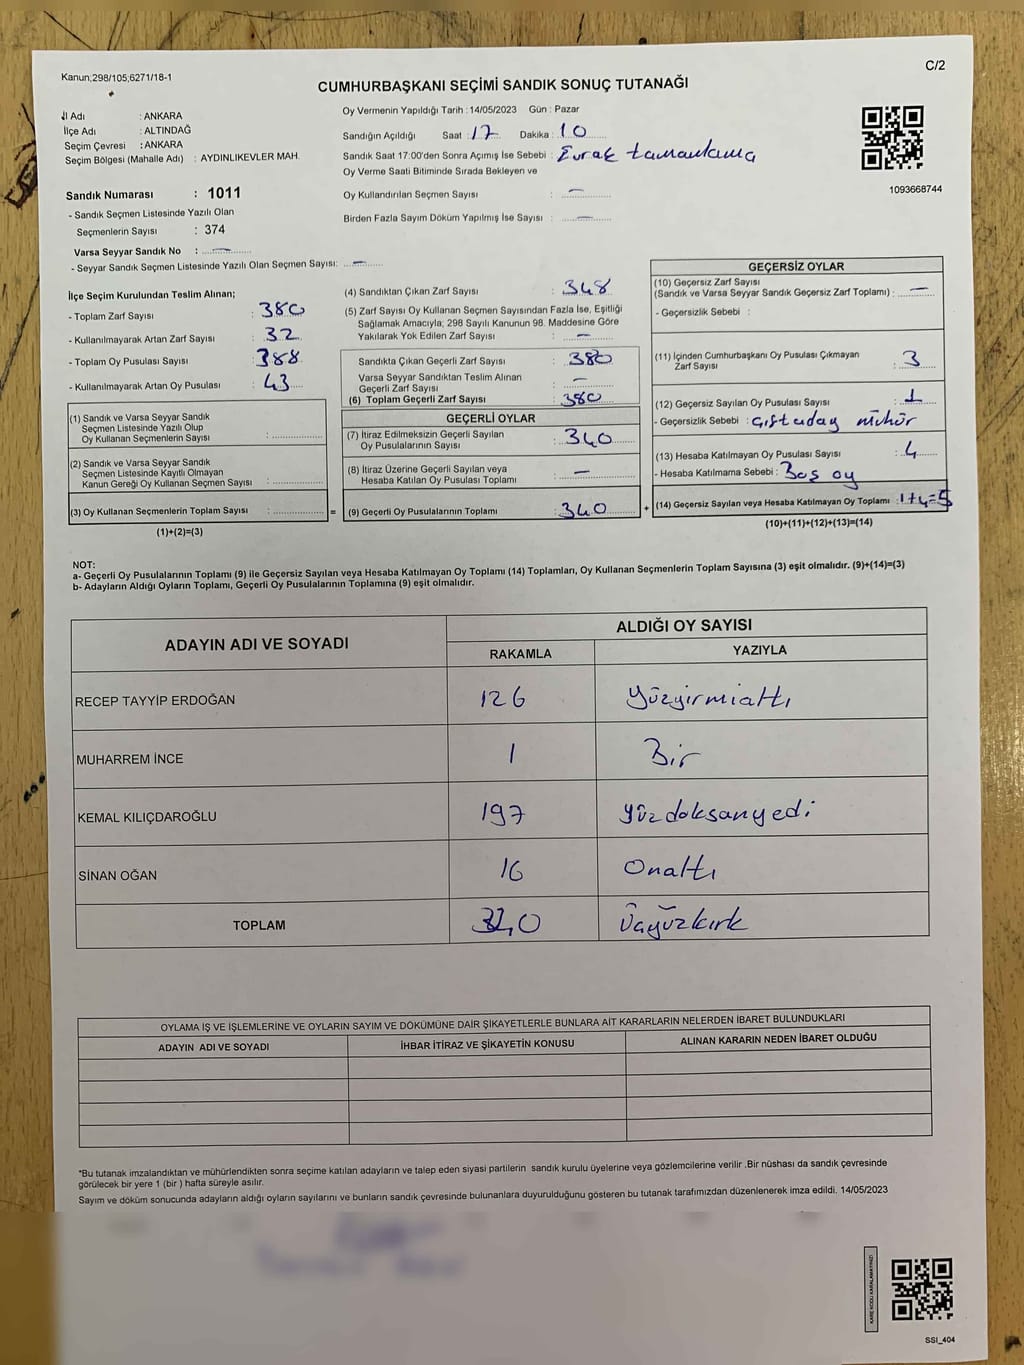 Kanun;298/105;6271/18-1
C/2
CUMHURBAŞKANI SEÇİMİ SANDIK SONUÇ TUTANAĞI
İl Adı : ANKARA
İlçe Adı : ALTINDAĞ
Seçim Çevresi : ANKARA
Seçim Bölgesi (Mahalle Adı) : AYDINLIKEVLER MAH.
Oy Vermenin Yapıldığı Tarih : 14/05/2023 Gün : Pazar
Sandığın Açıldığı Saat : 17 Dakika : 10
Sandık Saat 17:00'den Sonra Açımış İse Sebebi : Evrak tamamlama
Oy Verme Saati Bitiminde Sırada Bekleyen ve
Oy Kullandırılan Seçmen Sayısı : —
Birden Fazla Sayım Döküm Yapılmış İse Sayısı : —
1093668744
Sandık Numarası : 1011
- Sandık Seçmen Listesinde Yazılı Olan
Seçmenlerin Sayısı : 374
Varsa Seyyar Sandık No : —
- Seyyar Sandık Seçmen Listesinde Yazılı Olan Seçmen Sayısı: —
İlçe Seçim Kurulundan Teslim Alınan;
- Toplam Zarf Sayısı : 380
- Kullanılmayarak Artan Zarf Sayısı : 32
- Toplam Oy Pusulası Sayısı : 388
- Kullanılmayarak Artan Oy Pusulası : 43
(1) Sandık ve Varsa Seyyar Sandık
Seçmen Listesinde Yazılı Olup
Oy Kullanan Seçmenlerin Sayısı :
(2) Sandık ve Varsa Seyyar Sandık
Seçmen Listesinde Kayıtlı Olmayan
Kanun Gereği Oy Kullanan Seçmen Sayısı :
(3) Oy Kullanan Seçmenlerin Toplam Sayısı : =
(1)+(2)=(3)
(4) Sandıktan Çıkan Zarf Sayısı : 348
(5) Zarf Sayısı Oy Kullanan Seçmen Sayısından Fazla İse, Eşitliği
Sağlamak Amacıyla; 298 Sayılı Kanunun 98. Maddesine Göre
Yakılarak Yok Edilen Zarf Sayısı : —
Sandıkta Çıkan Geçerli Zarf Sayısı : 380
Varsa Seyyar Sandıktan Teslim Alınan
Geçerli Zarf Sayısı : —
(6) Toplam Geçerli Zarf Sayısı : 380
GEÇERLİ OYLAR
(7) İtiraz Edilmeksizin Geçerli Sayılan
Oy Pusulalarının Sayısı : 340
(8) İtiraz Üzerine Geçerli Sayılan veya
Hesaba Katılan Oy Pusulası Toplamı : —
(9) Geçerli Oy Pusulalarının Toplamı : 340 +
GEÇERSİZ OYLAR
(10) Geçersiz Zarf Sayısı
(Sandık ve Varsa Seyyar Sandık Geçersiz Zarf Toplamı) : —
- Geçersizlik Sebebi :
(11) İçinden Cumhurbaşkanı Oy Pusulası Çıkmayan
Zarf Sayısı : 3
(12) Geçersiz Sayılan Oy Pusulası Sayısı : 1
- Geçersizlik Sebebi : mühür
(13) Hesaba Katılmayan Oy Pusulası Sayısı : 4
- Hesaba Katılmama Sebebi : Boş oy
(14) Geçersiz Sayılan veya Hesaba Katılmayan Oy Toplamı : 1+4=5
(10)+(11)+(12)+(13)=(14)
NOT:
a- Geçerli Oy Pusulalarının Toplamı (9) ile Geçersiz Sayılan veya Hesaba Katılmayan Oy Toplamı (14) Toplamları, Oy Kullanan Seçmenlerin Toplam Sayısına (3) eşit olmalıdır. (9)+(14)=(3)
b- Adayların Aldığı Oyların Toplamı, Geçerli Oy Pusulalarının Toplamına (9) eşit olmalıdır.
ADAYIN ADI VE SOYADI
ALDIĞI OY SAYISI
RAKAMLA YAZIYLA
RECEP TAYYİP ERDOĞAN 126 Yüzyirmialtı
MUHARREM İNCE 1 Bir
KEMAL KILIÇDAROĞLU 197 Yüzdoksanyedi
SİNAN OĞAN 16 Onaltı
TOPLAM 340 Üçyüzkırk
OYLAMA İŞ VE İŞLEMLERİNE VE OYLARIN SAYIM VE DÖKÜMÜNE DAİR ŞİKAYETLERLE BUNLARA AİT KARARLARIN NELERDEN İBARET BULUNDUKLARI
ADAYIN ADI VE SOYADI İHBAR İTİRAZ VE ŞİKAYETİN KONUSU ALINAN KARARIN NEDEN İBARET OLDUĞU
*Bu tutanak imzalandıktan ve mühürlendikten sonra seçime katılan adayların ve talep eden siyasi partilerin sandık kurulu üyelerine veya gözlemcilerine verilir .Bir nüshası da sandık çevresinde
görülecek bir yere 1 (bir ) hafta süreyle asılır.
Sayım ve döküm sonucunda adayların aldığı oyların sayılarını ve bunların sandık çevresinde bulunanlara duyurulduğunu gösteren bu tutanak tarafımızdan düzenlenerek imza edildi. 14/05/2023
KARE KODU KARALAMAYINIZ!
SSI_404